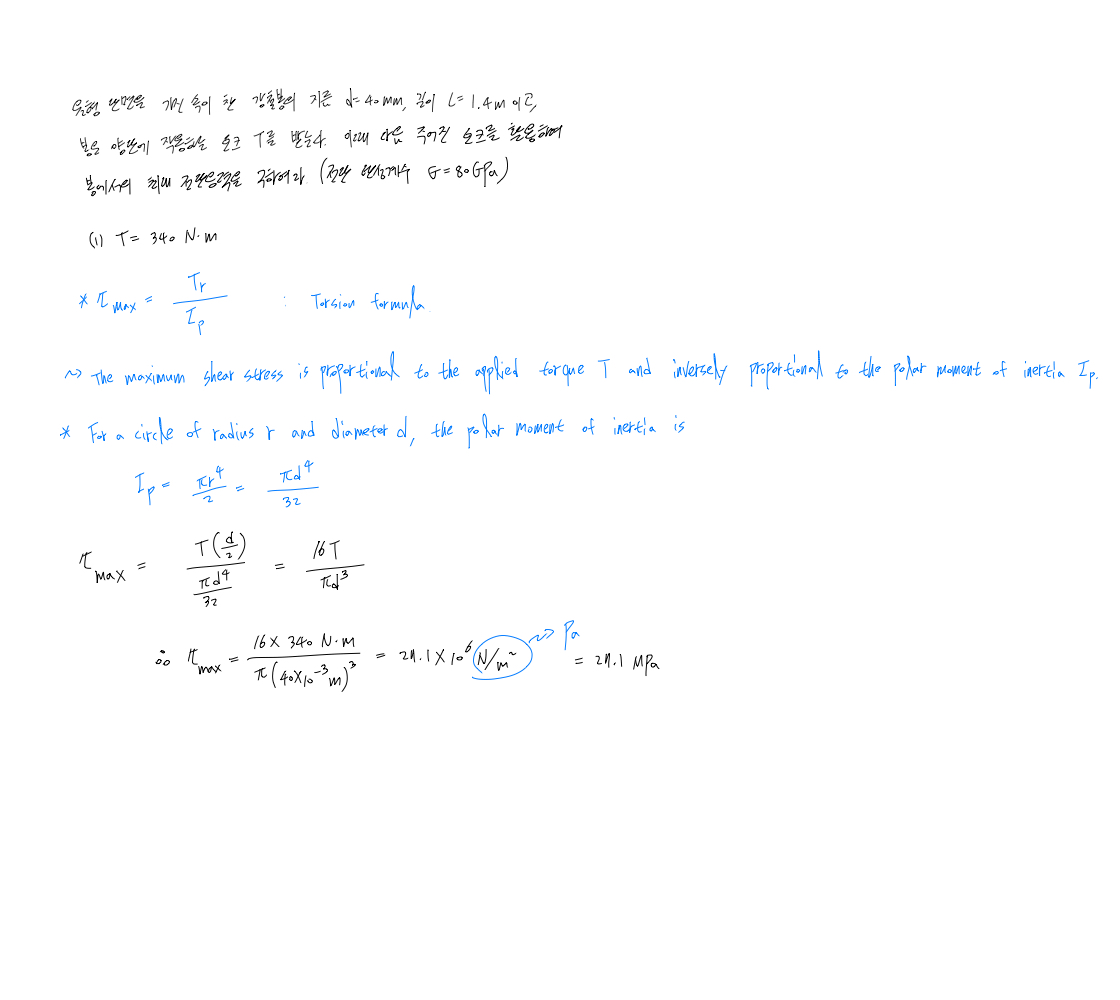 원형 단면을 가진 속이 찬 강철봉의 지름 d=40mm, 길이 L=1.4m 이고,
봉은 양단에 작용하는 토크 T를 받는다. 이때 다음 주어진 토크를 활용하여
봉에서의 최대 전단응력을 구하여라 (전단 탄성계수 G=80GPa)
(1) T= 340 N·m
* τmax = Tr / Ip : Torsion formula
~> The maximum shear stress is proportional to the applied torque T and inversely proportional to the polar moment of inertia Ip.
* For a circle of radius r and diameter d, the polar moment of inertia is
Ip = πr⁴/2 = πd⁴/32
τmax = T(d/2) / (πd⁴/32) = 16T / πd³
∴ τmax = 16×340 N·m / π(40×10⁻³m)³ = 27.1×10⁶ N/m² ~> Pa = 27.1 MPa